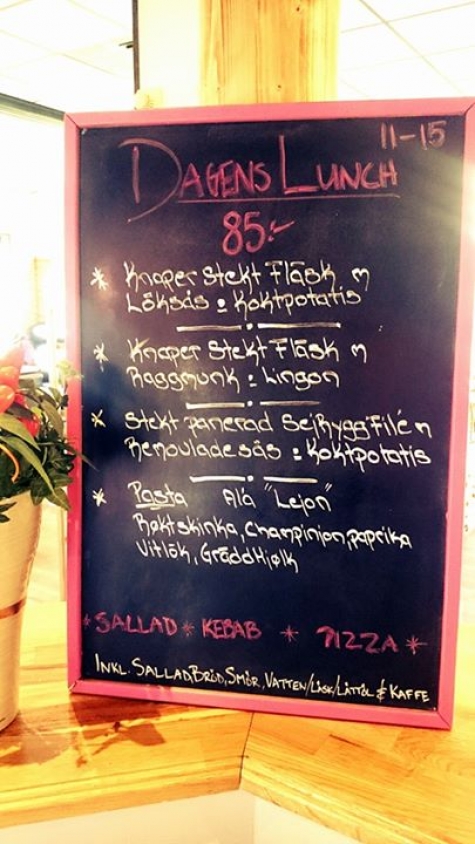 11-15
DAGENS LUNCH
85:-
* Knaper Stekt Fläsk m
Löksås & Koktpotatis
* Knaper Stekt Fläsk m
Raggmunk & Lingon
* Stekt panerad SejRyggFilé m
Remouladesås & Koktpotatis
* Pasta Ala "Lejon"
Røktskinka, Champinjon, paprika
Vitlök, GräddMjølk
* SALLAD * KEBAB * PIZZA *
INKL. SALLAD, BRÖD, SMÖR, VATTEN/LÄSK/LÄTTÖL & KAFFE